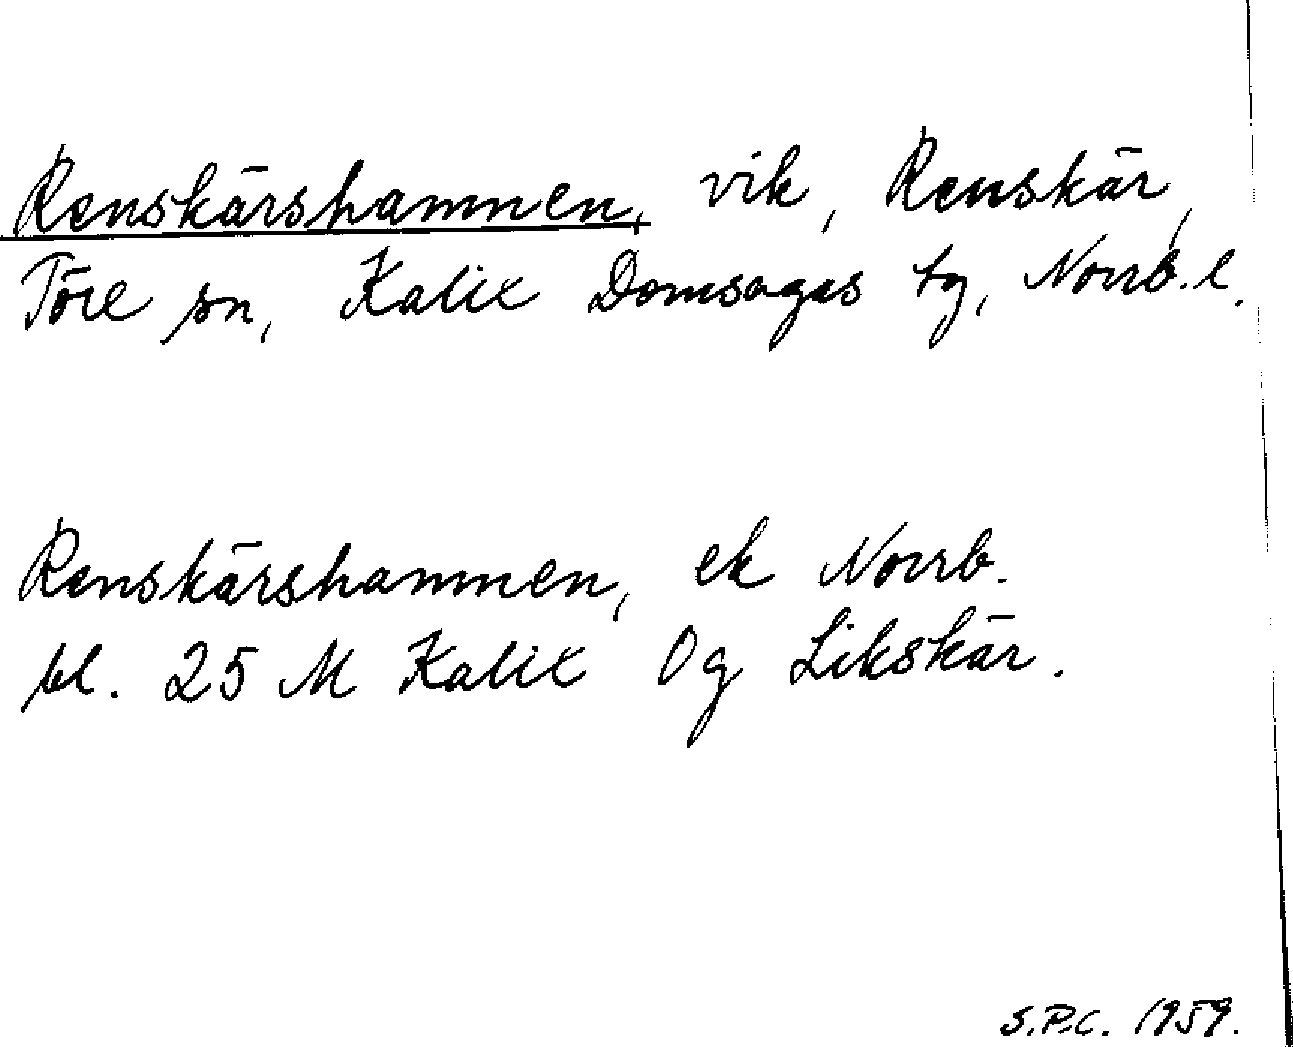 Renskärshamnen, vik, Renskär,
Töre sn, Kalix Domsagas tg, Norrb. l.
Renskärshamnen, ek Norrb.
bl. 25 M Kalix Og Likskär.
S.P.C. 1959.